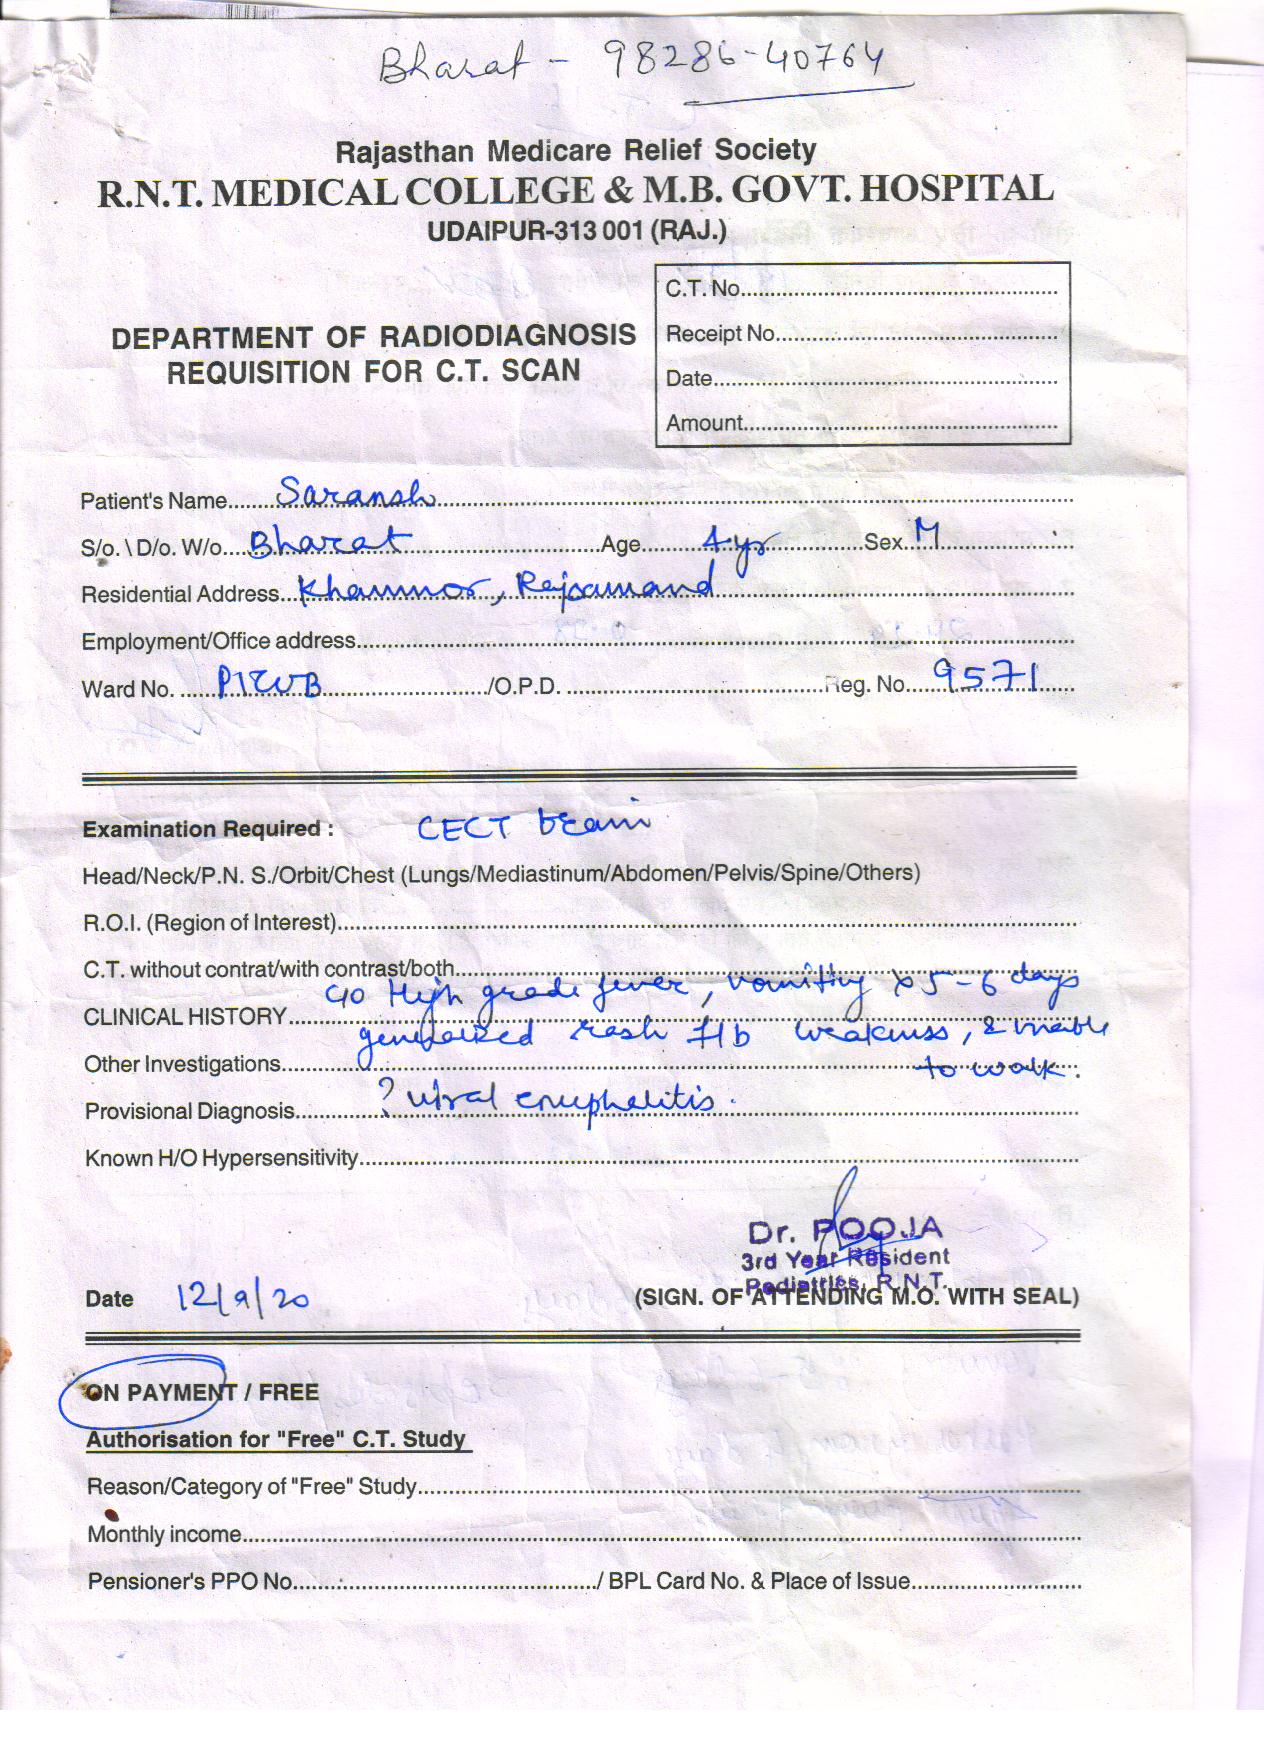 Bharat - 98286-40764
Rajasthan Medicare Relief Society
R.N.T. MEDICAL COLLEGE & M.B. GOVT. HOSPITAL
UDAIPUR-313 001 (RAJ.)
C.T. No.
DEPARTMENT OF RADIODIAGNOSIS
REQUISITION FOR C.T. SCAN
Receipt No.
Date
Amount
Patient's Name Saransh
S/o. \ D/o. W/o. Bharat Age 4 yr Sex M
Residential Address Khamnor, Rajsamand
Employment/Office address
Ward No. /O.P.D. Reg. No. 9571
Examination Required : CECT brain
Head/Neck/P.N. S./Orbit/Chest (Lungs/Mediastinum/Abdomen/Pelvis/Spine/Others)
R.O.I. (Region of Interest)
C.T. without contrat/with contrast/both
CLINICAL HISTORY c/o High grade fever, vomiting x 5-6 days
generalized rash f/b weakness, & unable
Other Investigations to walk.
Provisional Diagnosis ? viral encephalitis.
Known H/O Hypersensitivity
Dr. POOJA
3rd Year Resident
Pediatrics, R.N.T.
Date 12/9/20 (SIGN. OF ATTENDING M.O. WITH SEAL)
ON PAYMENT / FREE
Authorisation for "Free" C.T. Study
Reason/Category of "Free" Study
Monthly income
Pensioner's PPO No. / BPL Card No. & Place of Issue